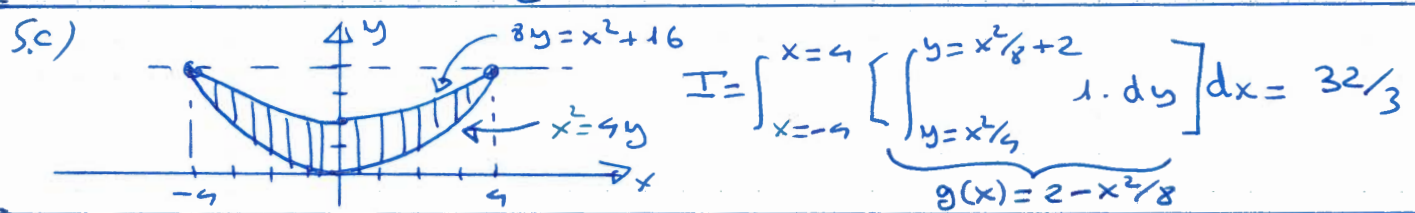 5.c)
y
8y = x² + 16
x² = 4y
-4
4
x
I = ∫_{x=-4}^{x=4} [ ∫_{y=x²/4}^{y=x²/8+2} 1. dy ] dx = 32/3
g(x) = 2 - x²/8